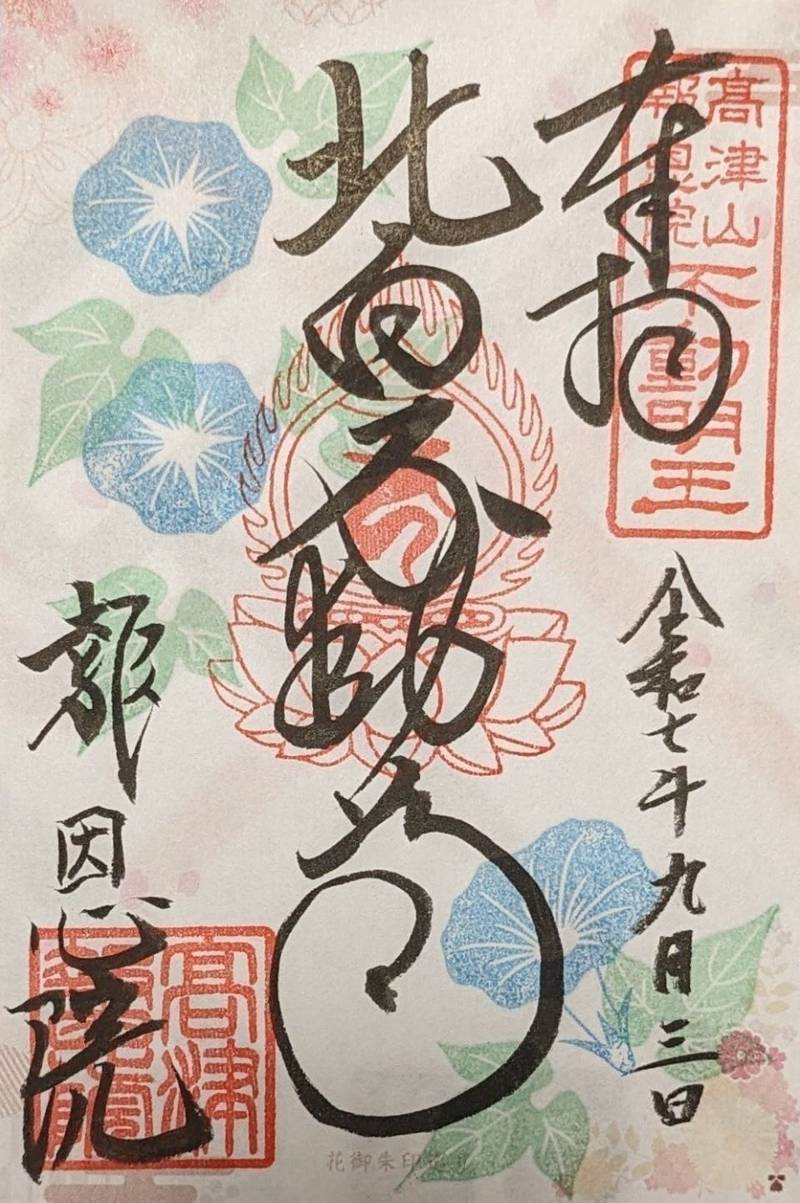 奉拝
髙津山
報恩院
不動明王
令和七年九月三日
北向不動尊
報恩院
高津
花御朱印